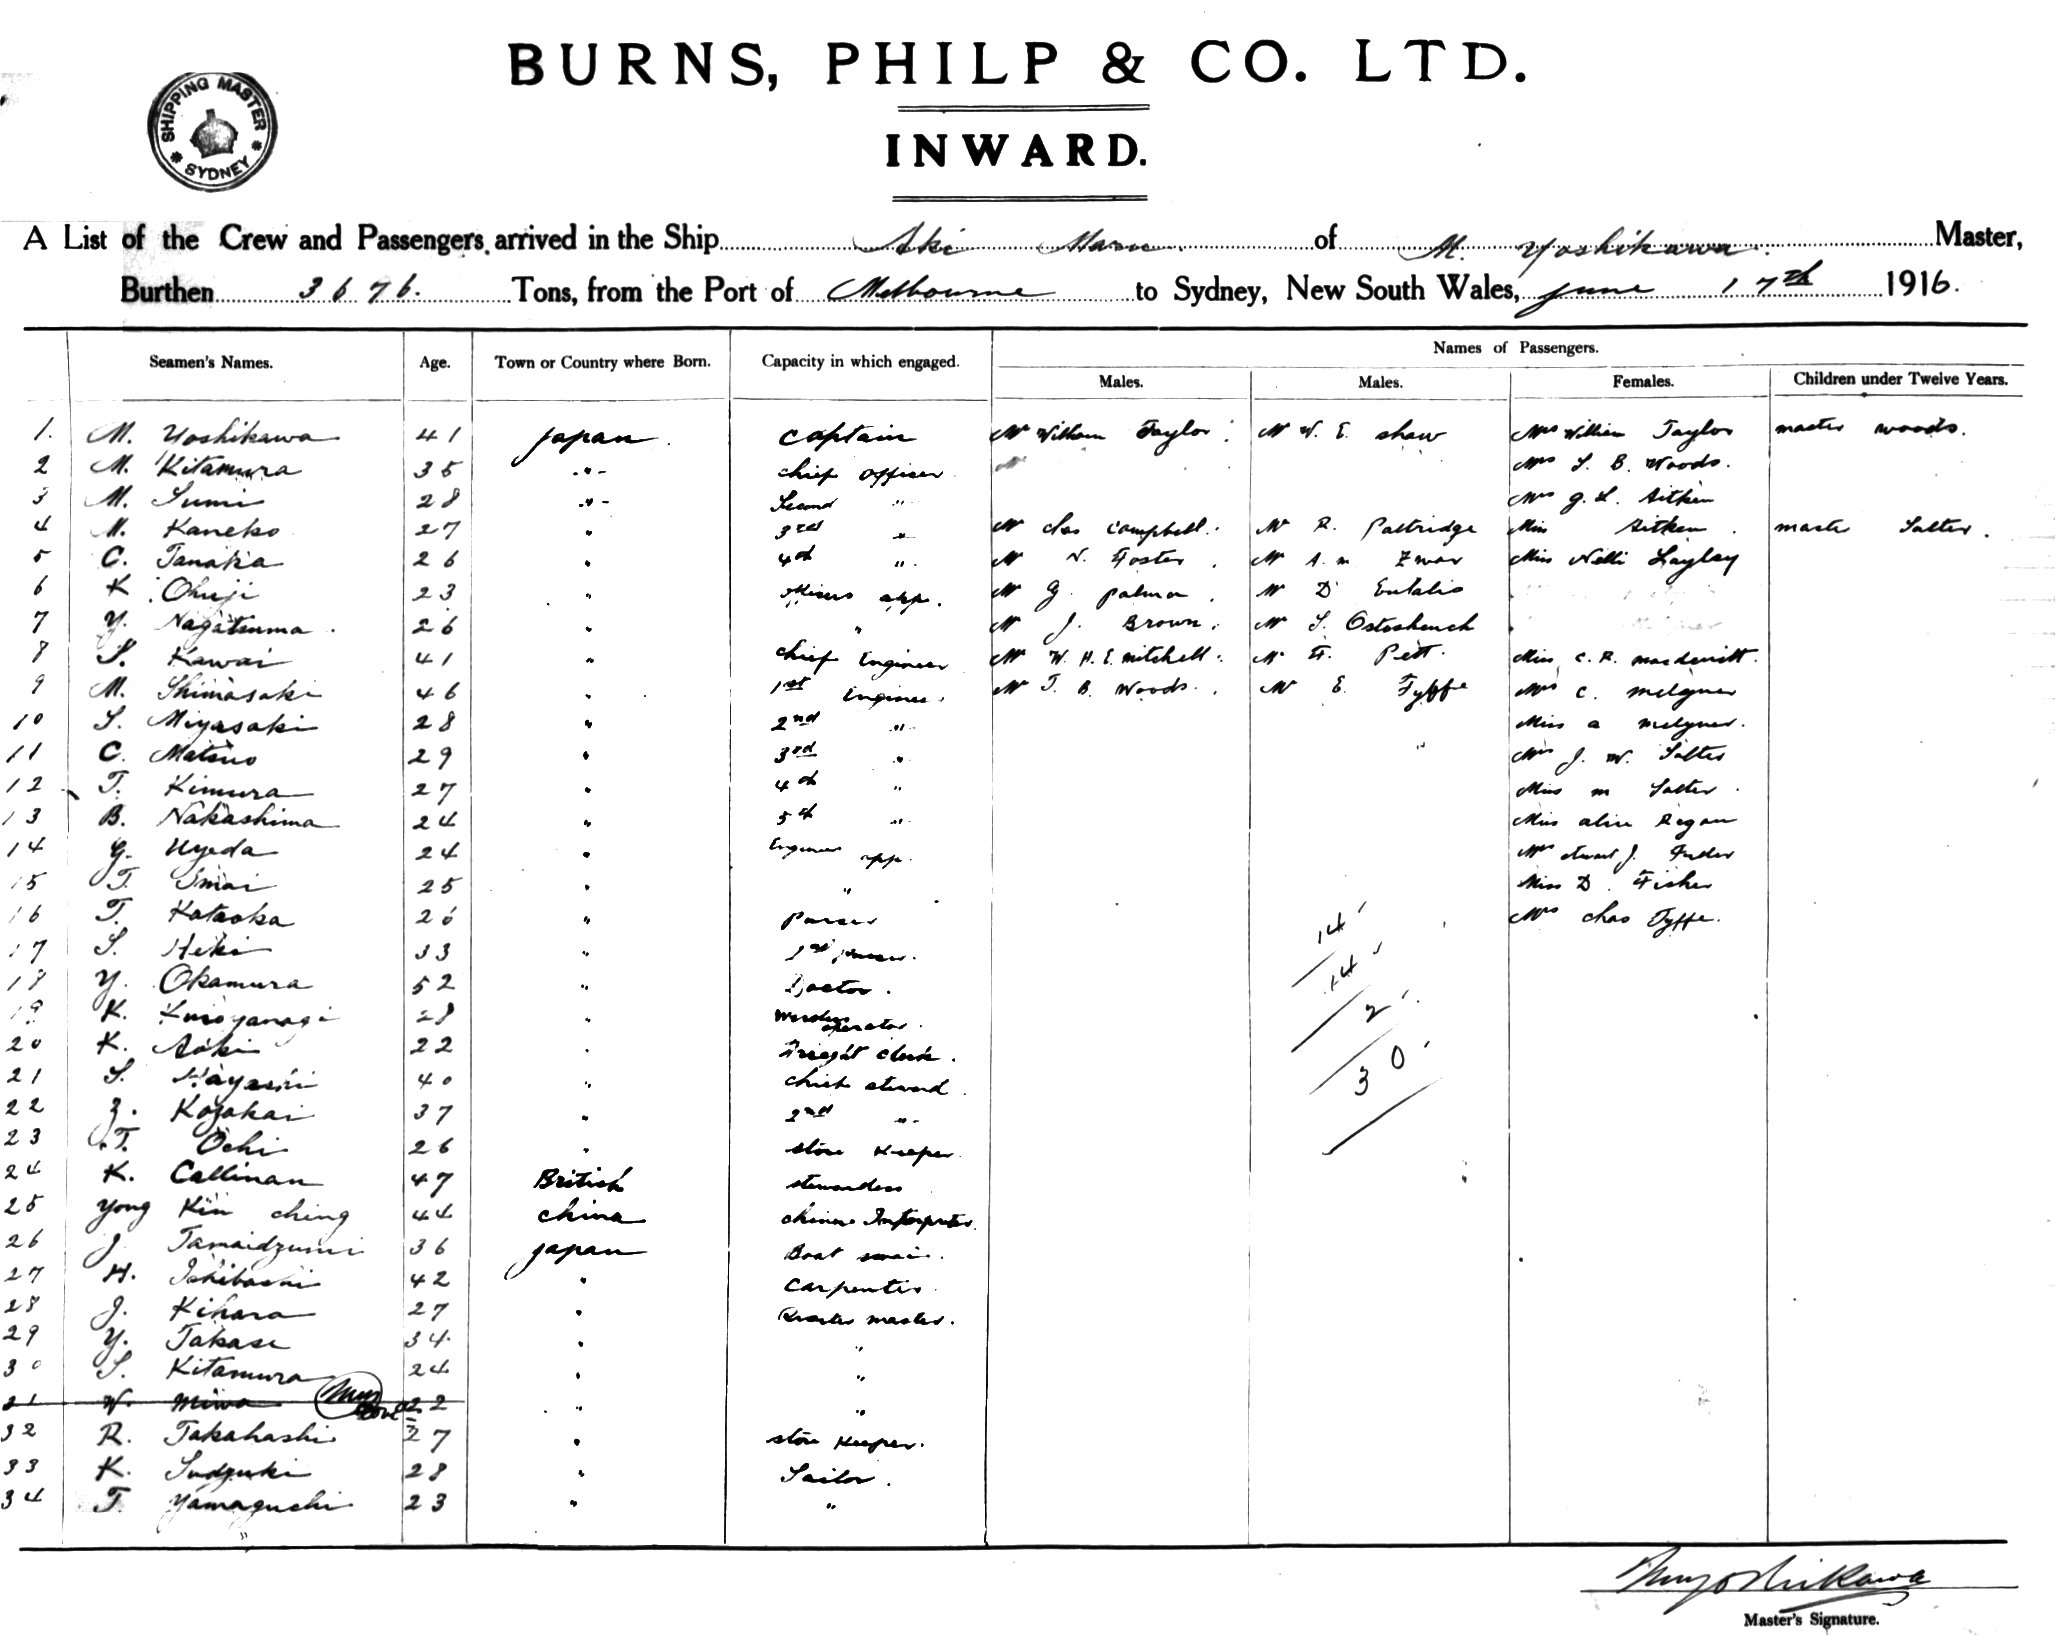 BURNS, PHILP & CO. LTD.
INWARD.
SHIPPING MASTER
SYDNEY
A List of the Crew and Passengers arrived in the Ship Aki Maru of M. Yoshikawa Master,
Burthen 3676. Tons, from the Port of Melbourne to Sydney, New South Wales, June 17th 1916.
Names of Passengers.
Seamen's Names. Age. Town or Country where Born. Capacity in which engaged. Males. Males. Females. Children under Twelve Years.
1. M. Yoshikawa 41 Japan. Captain Mr William Taylor. Mr W. E. Shaw Mrs William Taylor master woods.
2 M. Kitamura 35 -"- chief officer Mrs S. B. Woods.
3 M. Sumi 28 -"- Second " Mrs G. L. Aitken
4 M. Kaneko 27 " 3rd " Mr Chas Campbell. Mr R. Partridge Miss Aitken. master Salter.
5 C. Tanaka 26 " 4th " Mr N. Foster. Mr A. m Zwar Miss Nelli Layley
6 K. Ohuji 23 " app. Mr G. palmer. Mr D
7 Y. Nagatsuma. 26 " " Mr J. Brown. Mr S.
8 S. Kawai 41 " chief Engineer Mr W. H. E. mitchell. Mr F. Pett. Miss C. R.
9 M. Shimasaki 46 " 1st Engineer. Mr T. B. Woods. Mr E. Fyffe Mrs C. melgner
10 S. Miyasaki 28 " 2nd " Miss a melgner.
11 C. Matsuo 29 " 3rd " Mrs J. W. Salter
12 T. Kimura 27 " 4th " Miss m Salter.
13 B. Nakashima 24 " 5th " Miss alice Regan
14 G. Uyeda 24 " Engineer app. Mrs J.
15 T. Imai 25 " " Miss D. Fisher
16 T. Kataoka 26 " Purser Mrs chas Fyffe.
17 S. Heki 33 " purser.
18 Y. Okamura 52 " Doctor.
19 K. Kuroyanagi 28 " operator.
20 K. Aoki 22 " Freight clerk.
21 S. Hayashi 40 " chief steward
22 Z. Kozakai 37 " 2nd "
23 T. Ochi 26 " store Keeper.
24 K. Callinan 47 British stewardess
25 Yong Kin ching 44 china chinese Interpreter.
26 J. Tamaidzumi 36 Japan Boat swain.
27 H. Ishibashi 42 " Carpenter.
28 J. Kihara 27 " Quarter master.
29 Y. Takase 34 " "
30 S. Kitamura 24 " "
31 W. Miwa 22 " "
32 R. Takahashi 27 " store Keeper.
33 K. Sudzuki 28 " Sailor.
34 T. Yamaguchi 23 " "
14
14
2
30
MYoshikawa
Master's Signature.